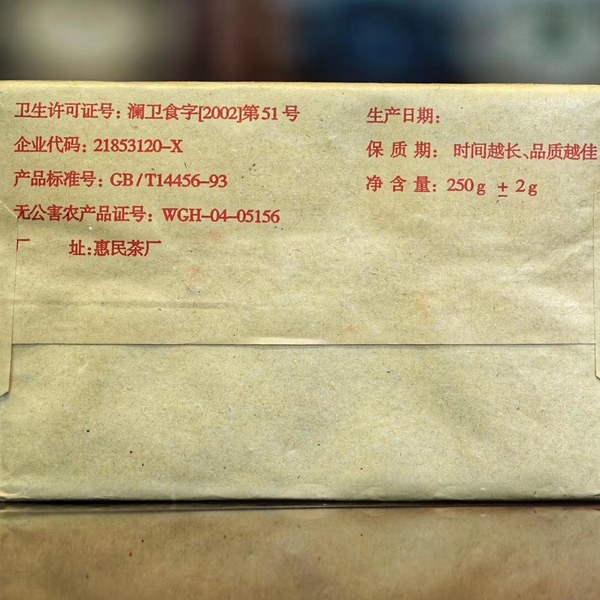 卫生许可证号：澜卫食字[2002]第51号
企业代码：21853120-X
产品标准号：GB/T14456-93
无公害农产品证号：WGH-04-05156
厂 址:惠民茶厂
生产日期：
保 质 期： 时间越长、品质越佳
净 含 量： 250g ± 2g